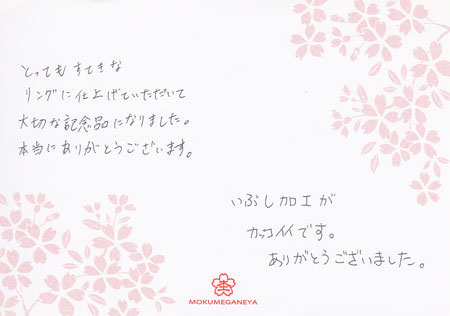 とってもすてきな
リングに仕上げていただいて
大切な記念品になりました。
本当にありがとうございます。
いぶし加工が
カッコイイです。
ありがとうございました。
MOKUMEGANEYA